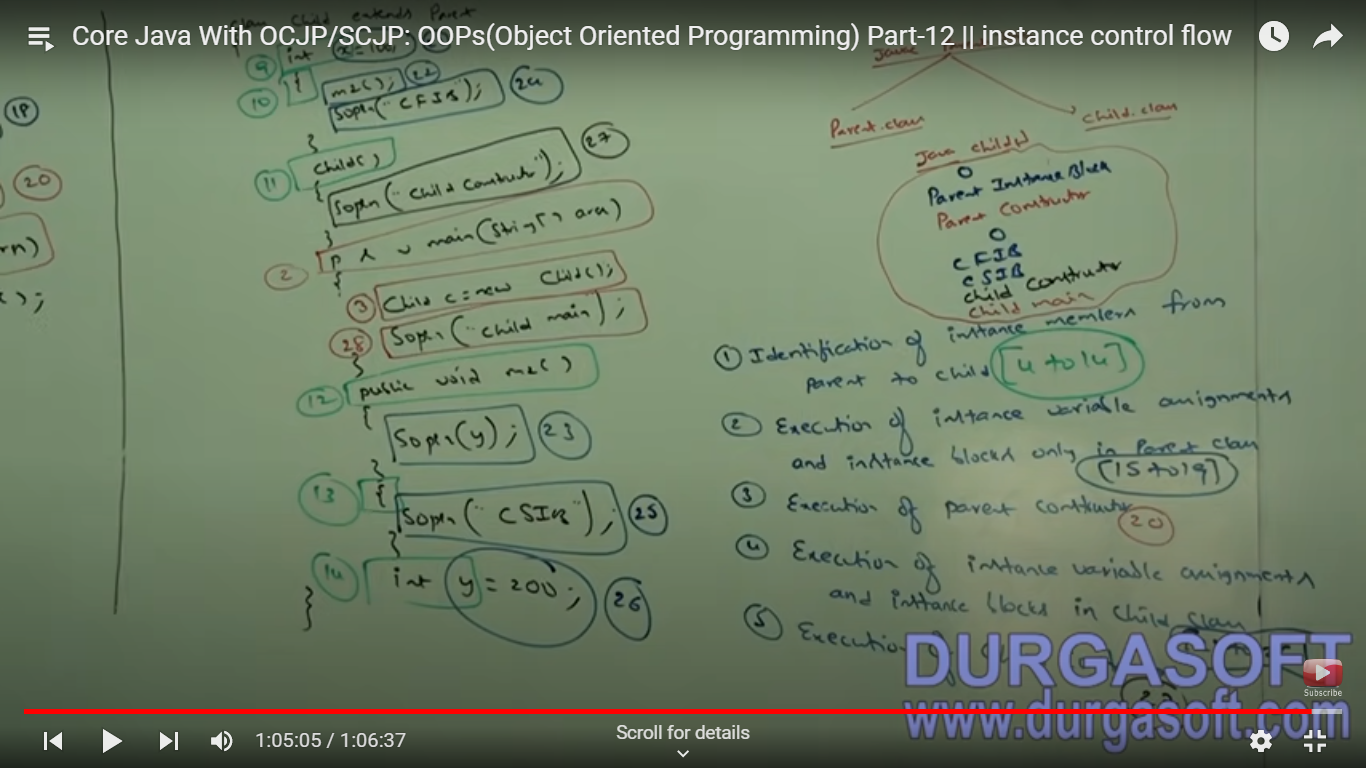 Core Java With OCJP/SCJP: OOPs(Object Oriented Programming) Part-12 || instance control flow
class Child extends Parent
{
9 int x=100;
10 { m2(); 22
Sopln("CFIB"); 24
}
11 Child()
{
Sopln("Child Constructor"); 27
}
2 p s v main(String[] args)
{
3 Child c=new Child();
28 Sopln("Child main");
}
12 public void m2()
{
Sopln(y); 23
}
13 {
Sopln("CSIB"); 25
}
14 int y=200; 26
}
18
20
);
Java
Parent.class
Child.class
Java child↵
0
Parent Instance Block
Parent Constructor
0
CFIB
CSIB
Child Constructor
Child main
1 Identification of instance members from
parent to child [4 to 14]
2 Execution of instance variable assignments
and instance blocks only in Parent class
[15 to 19]
3 Execution of parent constructor
20
4 Execution of instance variable assignments
and instance blocks in Child class
5 Execution of
DURGASOFT
www.durgasoft.com
Subscribe
1:05:05 / 1:06:37
Scroll for details